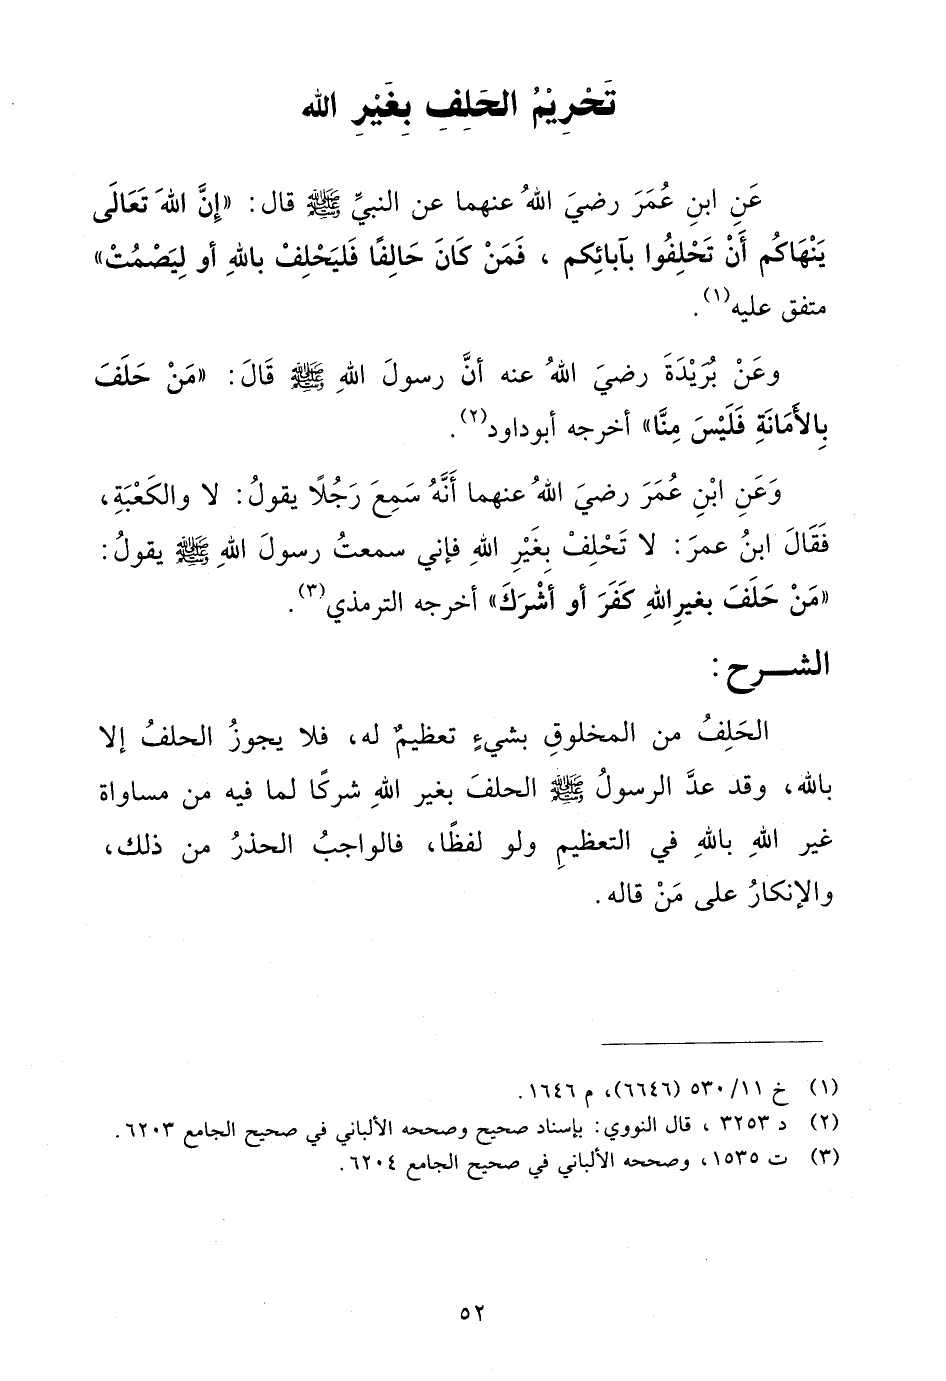 تَحْرِيْمُ الحَلِفِ بِغَيْرِ الله
عَنِ ابنِ عُمَرَ رضيَ اللهُ عنهما عن النبيِّ ﷺ قال: «إِنَّ اللهَ تَعَالَى
يَنْهَاكُم أَنْ تَحْلِفُوا بآبائِكم ، فَمَنْ كَانَ حَالِفًا فَليَحْلِفْ باللهِ أو لِيَصْمُتْ»
متفق عليه(١).
وعَنْ بُرَيْدَةَ رضيَ اللهُ عنه أنَّ رسولَ اللهِ ﷺ قَالَ: «مَنْ حَلَفَ
بِالأَمَانَةِ فَلَيْسَ مِنَّا» أخرجه أبوداود(٢).
وَعَنِ ابْنِ عُمَرَ رضيَ اللهُ عنهما أَنَّهُ سَمِعَ رَجُلًا يقولُ: لا والكَعْبَةِ،
فَقَالَ ابنُ عمرَ: لا تَحْلِفْ بِغَيْرِ اللهِ فإني سمعتُ رسولَ اللهِ ﷺ يقولُ:
«مَنْ حَلَفَ بغيرِاللهِ كَفَرَ أو أشْرَكَ» أخرجه الترمذي(٣).
الشـــرح :
الحَلِفُ من المخلوقِ بشيءٍ تعظيمٌ له، فلا يجوزُ الحلفُ إلا
بالله، وقد عدَّ الرسولُ ﷺ الحلفَ بغير اللهِ شركًا لما فيه من مساواة
غير اللهِ باللهِ في التعظيمِ ولو لفظًا، فالواجبُ الحذرُ من ذلك،
والإنكارُ على مَنْ قاله.
(١) خ ١١/ ٥٣٠ (٦٦٤٦)، م ١٦٤٦.
(٢) د ٣٢٥٣ ، قال النووي: بإسناد صحيح وصححه الألباني في صحيح الجامع ٦٢٠٣.
(٣) ت ١٥٣٥، وصححه الألباني في صحيح الجامع ٦٢٠٤.
٥٢